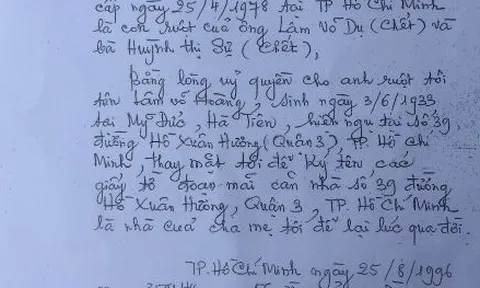 cấp ngày 25/4/1978 tại TP Hồ Chí Minh
là con ruột của ông Lâm Võ Dụ (chết) và
bà Huỳnh Thị Sử (chết),
Bằng lòng uỷ quyền cho anh ruột tôi
tên Lâm Võ Hoàng, sinh ngày 3/6/1933
tại Mỹ Đức, Hà Tiên, hiện ngụ tại số 39
đường Hồ Xuân Hương (Quận 3), TP. Hồ Chí
Minh, thay mặt tôi để ký tên các
giấy tờ đoạn mãi căn nhà số 39 đường
Hồ Xuân Hương, Quận 3, TP. Hồ Chí Minh
là nhà của cha mẹ tôi để lại lúc qua đời.
TP. Hồ Chí Minh ngày 25/8/1996